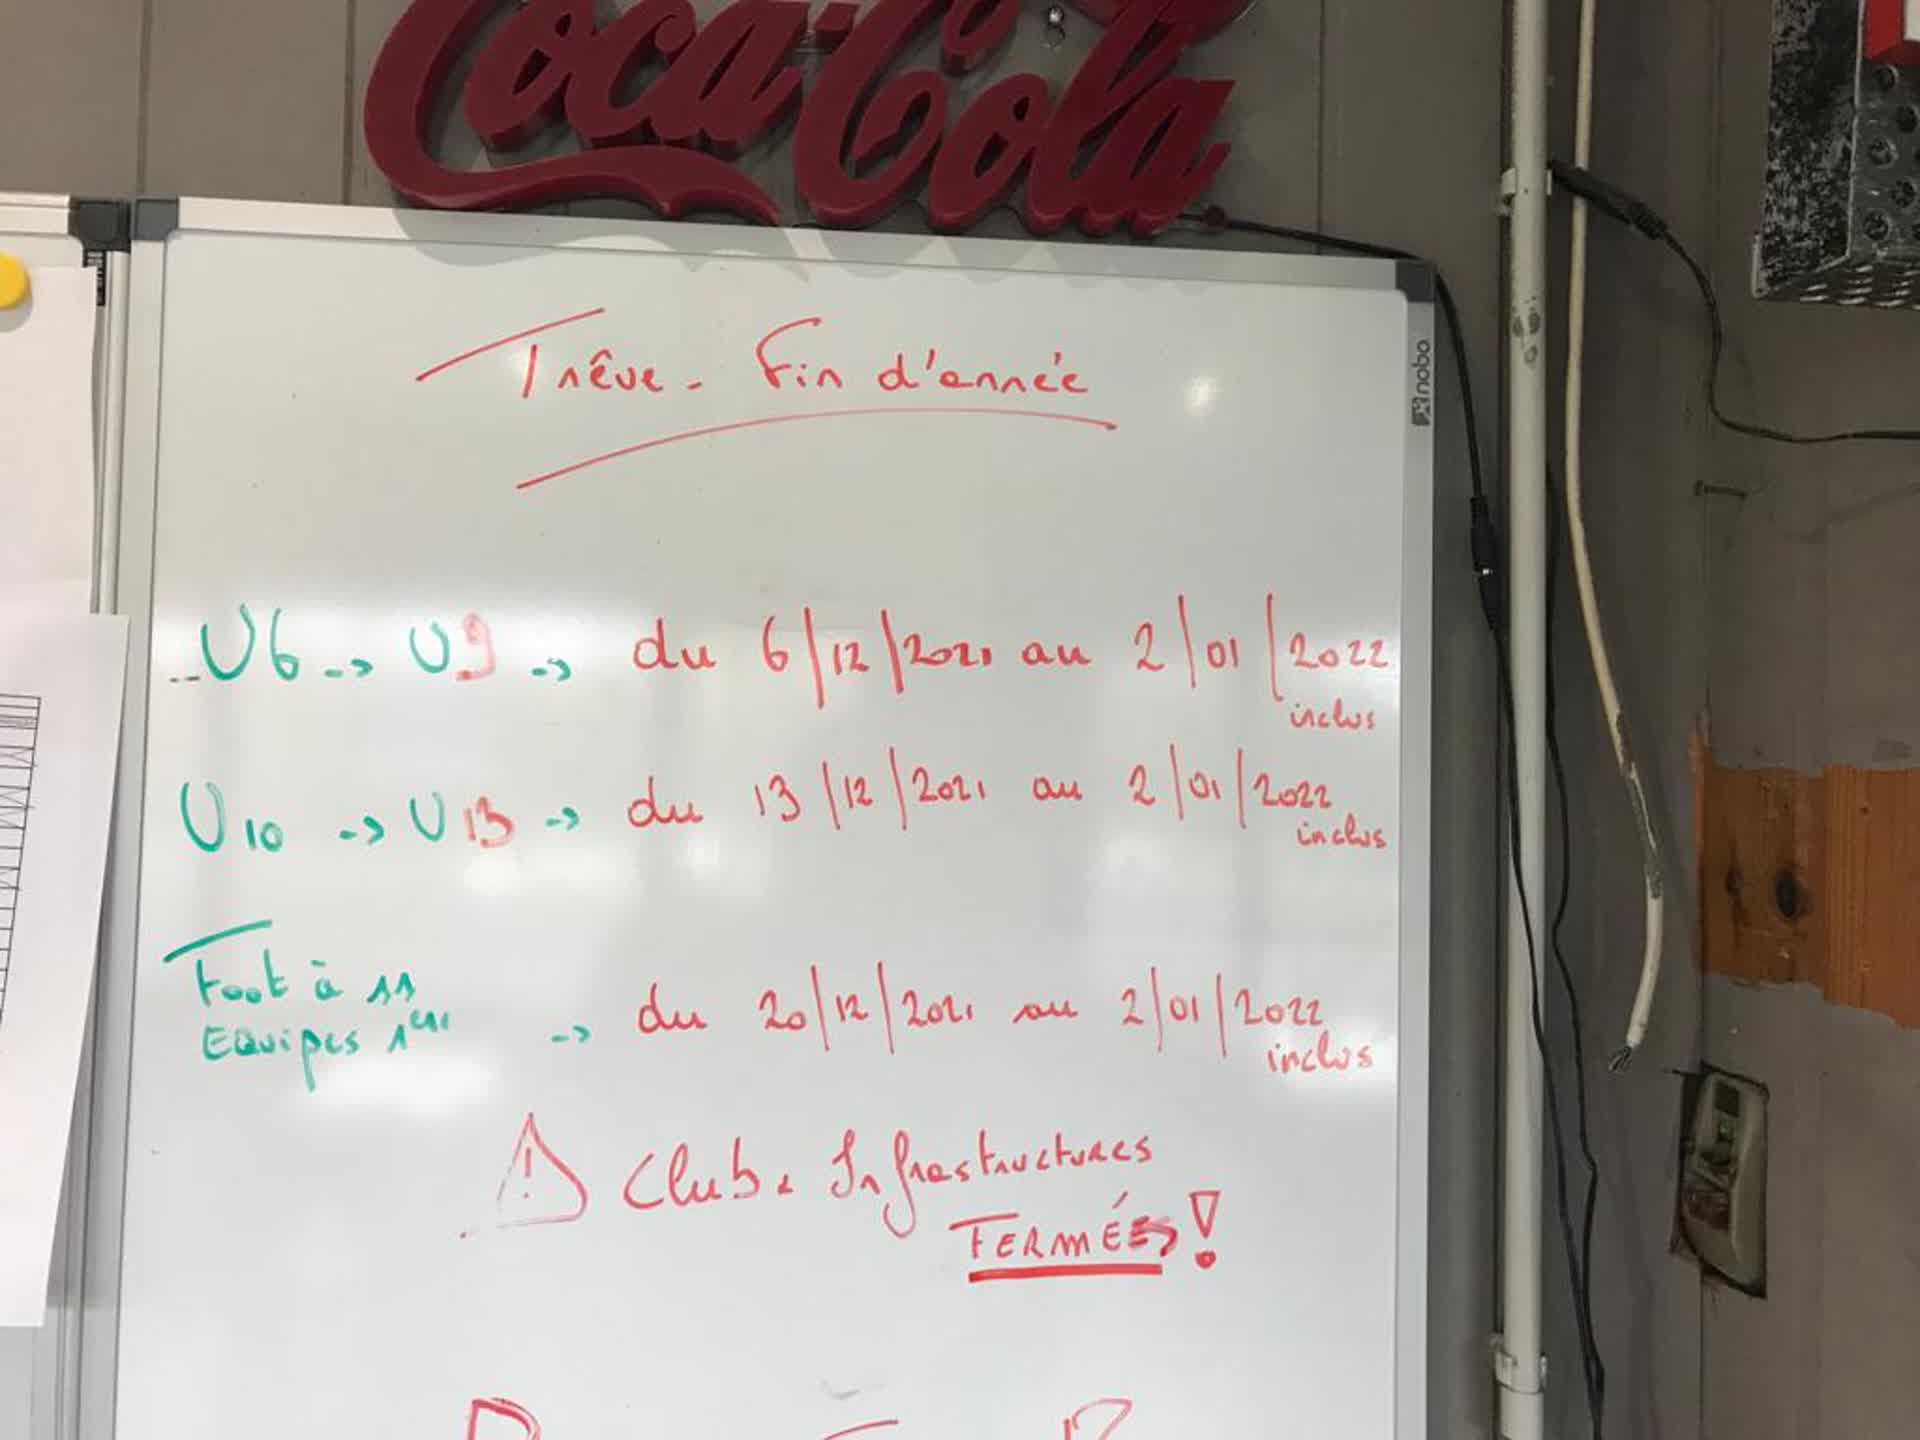 Coca-Cola
nobo
Trêve - Fin d'année
U6 -> U9 -> du 6/12/2021 au 2/01/2022
inclus
U10 -> U13 -> du 13/12/2021 au 2/01/2022
inclus
Foot à 11
Equipes 1ères -> du 20/12/2021 au 2/01/2022
inclus
! Club + Infrastructures
FERMÉS !